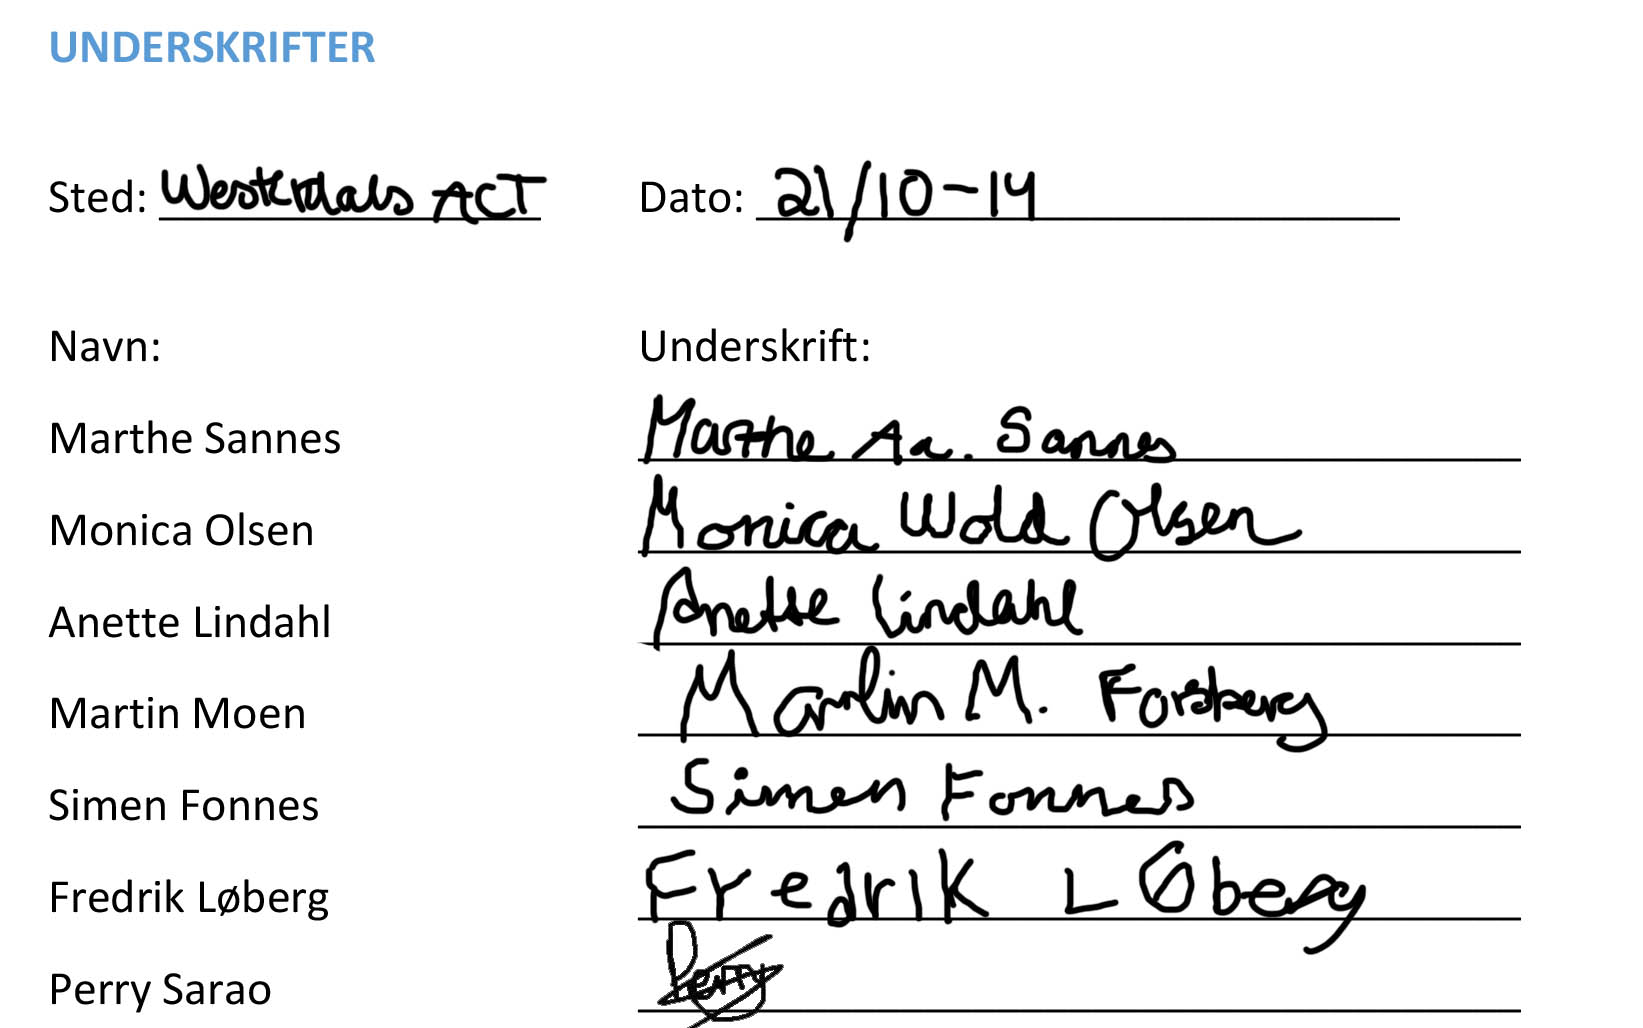 UNDERSKRIFTER
Sted: Westerdals ACT Dato: 21/10-14
Navn: Underskrift:
Marthe Sannes Marthe Aa. Sannes
Monica Olsen Monica Wold Olsen
Anette Lindahl Anette Lindahl
Martin Moen Martin M. Forsberg
Simen Fonnes Simen Fonnes
Fredrik Løberg Fredrik LØberg
Perry Sarao Perry